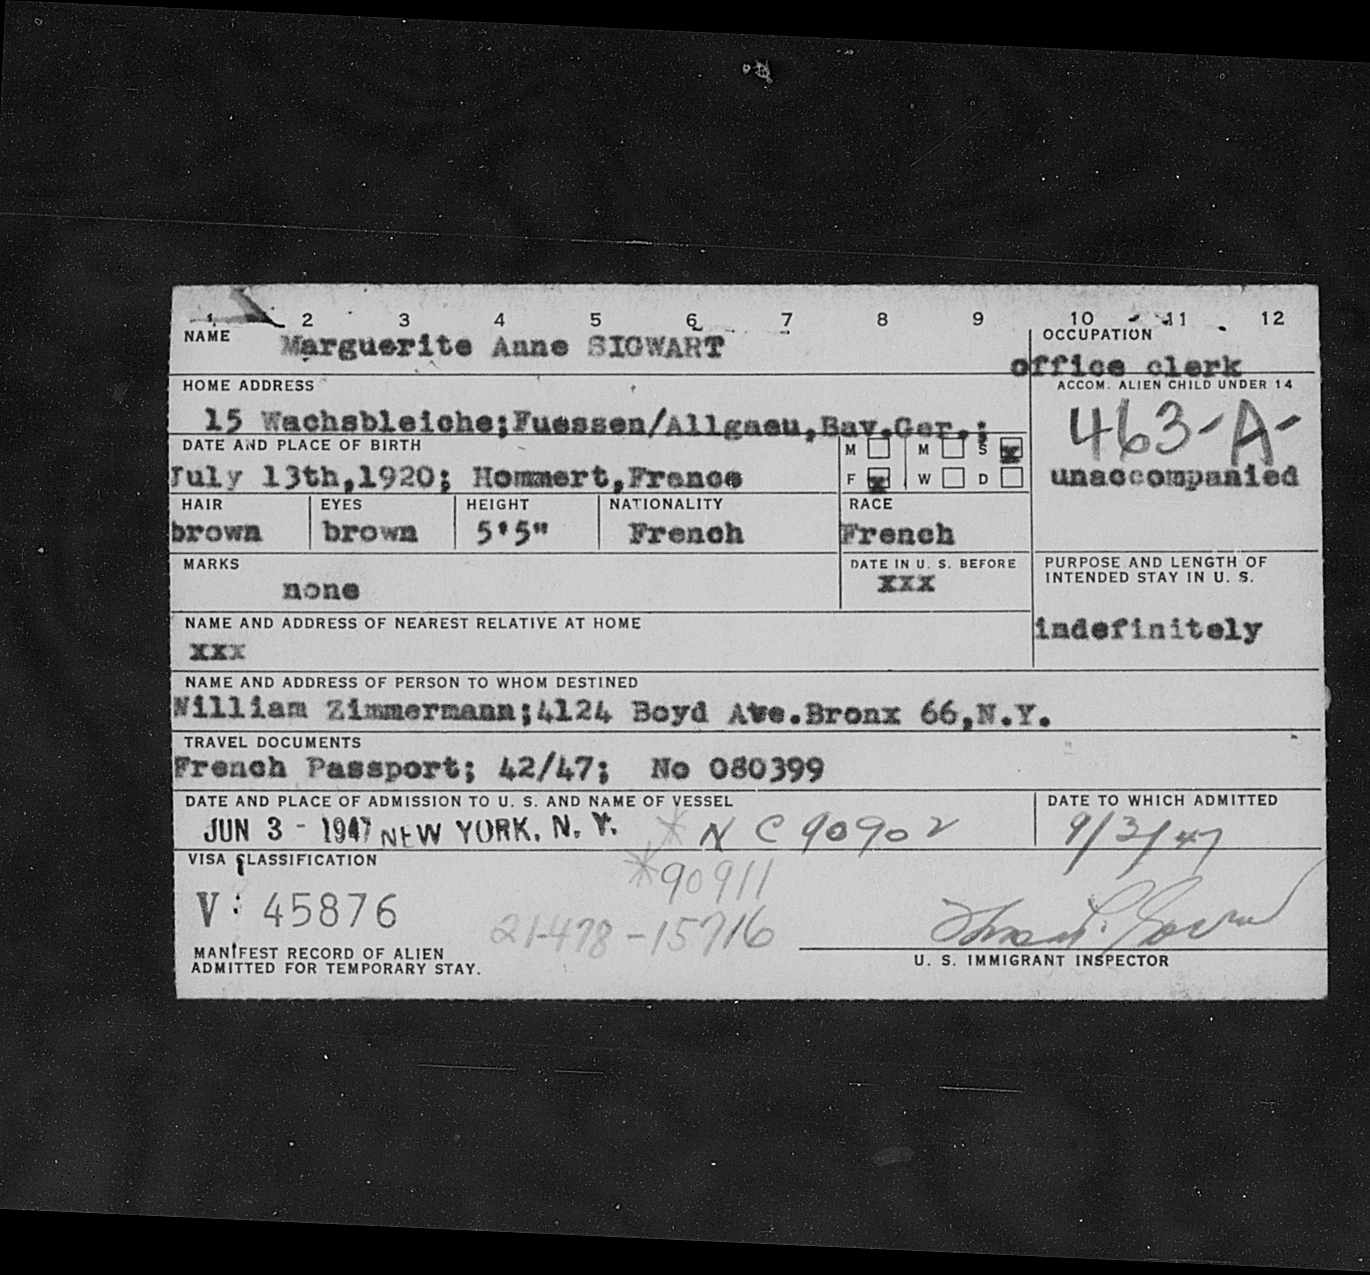 1 2 3 4 5 6 7 8 9 10 11 12
NAME
Marguerite Anne SIGWART
OCCUPATION
office clerk
HOME ADDRESS
15 Wachsbleiche;Fuessen/Allgaeu,Bay.Ger.;
ACCOM. ALIEN CHILD UNDER 14
463-A-
unaccompanied
DATE AND PLACE OF BIRTH
July 13th,1920; Hommert,France
M M S x
F x W D
HAIR EYES HEIGHT NATIONALITY RACE
brown brown 5'5" French French
MARKS
none
DATE IN U. S. BEFORE
xxx
PURPOSE AND LENGTH OF
INTENDED STAY IN U. S.
indefinitely
NAME AND ADDRESS OF NEAREST RELATIVE AT HOME
xxx
NAME AND ADDRESS OF PERSON TO WHOM DESTINED
William Zimmermann;4124 Boyd Ave.Bronx 66,N.Y.
TRAVEL DOCUMENTS
French Passport; 42/47; No 080399
DATE AND PLACE OF ADMISSION TO U. S. AND NAME OF VESSEL
JUN 3 - 1947 NEW YORK, N. Y. * N C 90902
DATE TO WHICH ADMITTED
9/3/47
VISA CLASSIFICATION
*90911
V: 45876
21-478-15716
MANIFEST RECORD OF ALIEN
ADMITTED FOR TEMPORARY STAY.
U. S. IMMIGRANT INSPECTOR